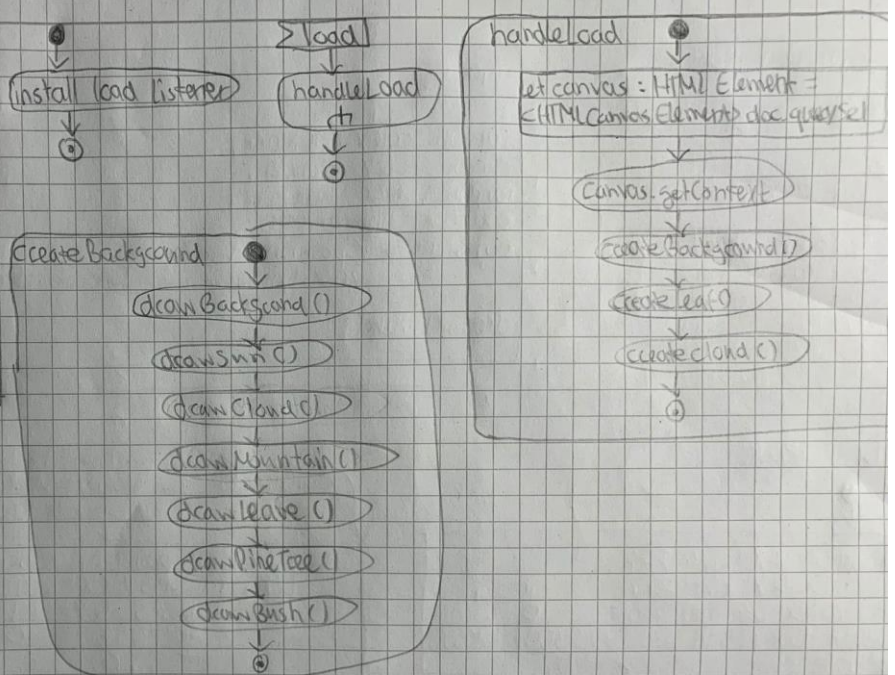 install load listener
load
handleLoad
handleLoad
let canvas : HTML Element =
<HTMLCanvasElement> doc.querySel
Canvas.getContext
createBackground()
createLeaf()
createCloud()
createBackground
drawBackgrond()
drawSun()
drawCloud()
drawMountain()
drawLeave()
drawPineTree()
drawBush()